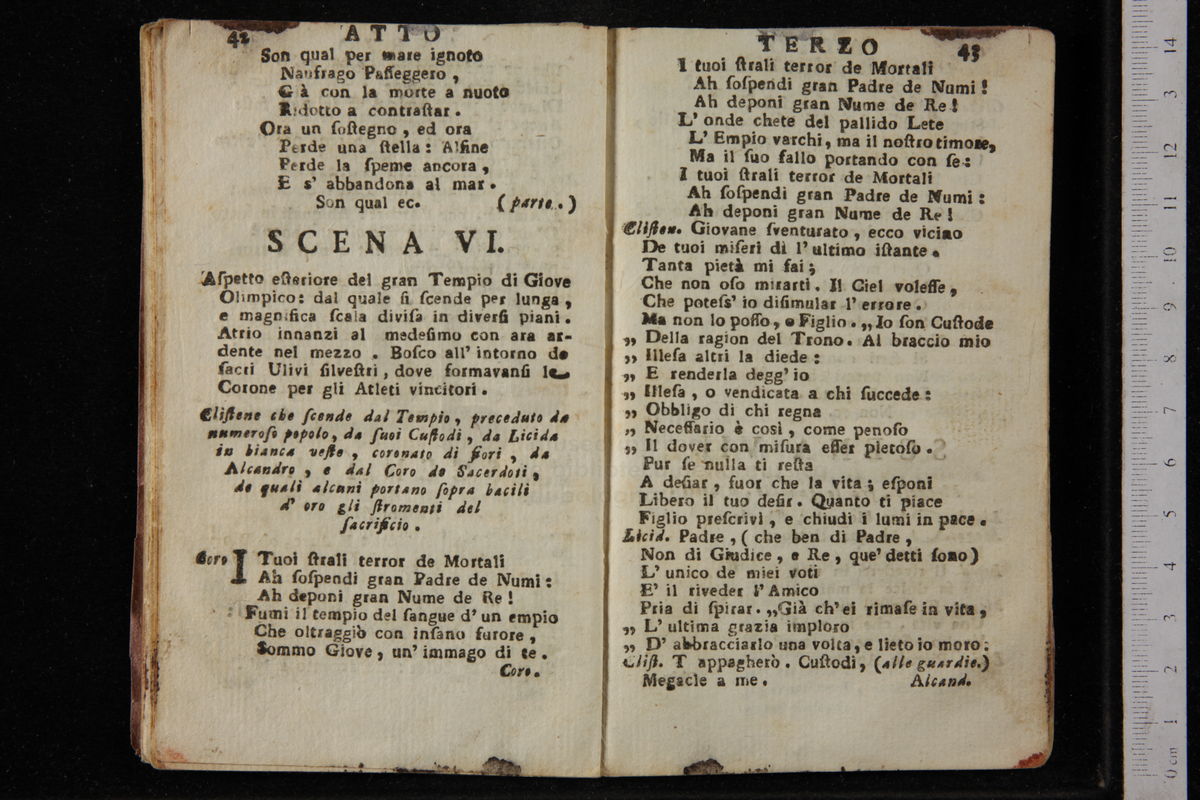 42 ATTO
Son qual per mare ignoto
Naufrago Paſſeggero ,
G à con la morte a nuoto
Ridotto a contraſtar .
Ora un ſoſtegno , ed ora
Perde una ſtella : Alfine
Perde la ſpeme ancora ,
E s' abbandona al mar .
Son qual ec. ( parte . )
SCENA VI.
Aſpetto eſteriore del gran Tempio di Giove
Olimpico : dal quale ſi ſcende per lunga ,
e magnifica ſcala diviſa in diverſi piani .
Atrio innanzi al medeſimo con ara ar-
dente nel mezzo . Boſco all' intorno de
ſacri Ulivi ſilveſtri , dove formavanſi le
Corone per gli Atleti vincitori .
Cliſtene che ſcende dal Tempio , preceduto da
numeroſo popolo , da ſuoi Cuſtodi , da Licida
in bianca veſte , coronato di fiori , da
Alcandro , e dal Coro de Sacerdoti ,
de quali alcuni portano ſopra bacili
d' oro gli ſtromenti del
ſacrificio .
Coro I Tuoi ſtrali terror de Mortali
Ah ſoſpendi gran Padre de Numi :
Ah deponi gran Nume de Re !
Fumi il tempio del ſangue d' un empio
Che oltraggiò con inſano furore ,
Sommo Giove , un' immago di te .
Coro .
TERZO 43
I tuoi ſtrali terror de Mortali
Ah ſoſpendi gran Padre de Numi !
Ah deponi gran Nume de Re !
L' onde chete del pallido Lete
L' Empio varchi , ma il noſtro timore,
Ma il ſuo fallo portando con ſe :
I tuoi ſtrali terror de Mortali
Ah ſoſpendi gran Padre de Numi :
Ah deponi gran Nume de Re !
Cliſten. Giovane ſventurato , ecco vicino
De tuoi miſeri dì l' ultimo iſtante .
Tanta pietà mi fai ;
Che non oſo mirarti . Il Ciel voleſſe ,
Che poteſs' io diſimular l' errore .
Ma non lo poſſo , o Figlio . „ Io ſon Cuſtode
„ Della ragion del Trono . Al braccio mio
„ Illeſa altri la diede :
„ E renderla degg' io
„ Illeſa , o vendicata a chi ſuccede :
„ Obbligo di chi regna
„ Neceſſario è così , come penoſo
„ Il dover con miſura eſſer pietoſo .
Pur ſe nulla ti reſta
A deſiar , fuor che la vita ; eſponi
Libero il tuo deſir . Quanto ti piace
Figlio preſcrivi , e chiudi i lumi in pace .
Licid. Padre , ( che ben di Padre ,
Non di Giudice , e Re , que' detti ſono )
L' unico de miei voti
E' il riveder l' Amico
Pria di ſpirar . „ Già ch' ei rimaſe in vita ,
„ L' ultima grazia imploro
„ D' abbracciarlo una volta , e lieto io moro :
Cliſt. T appagherò . Cuſtodi , (alle guardie.)
Megacle a me . Alcand.
14
3
12
11
10
9
8
7
6
5
4
3
2
1
0 cm